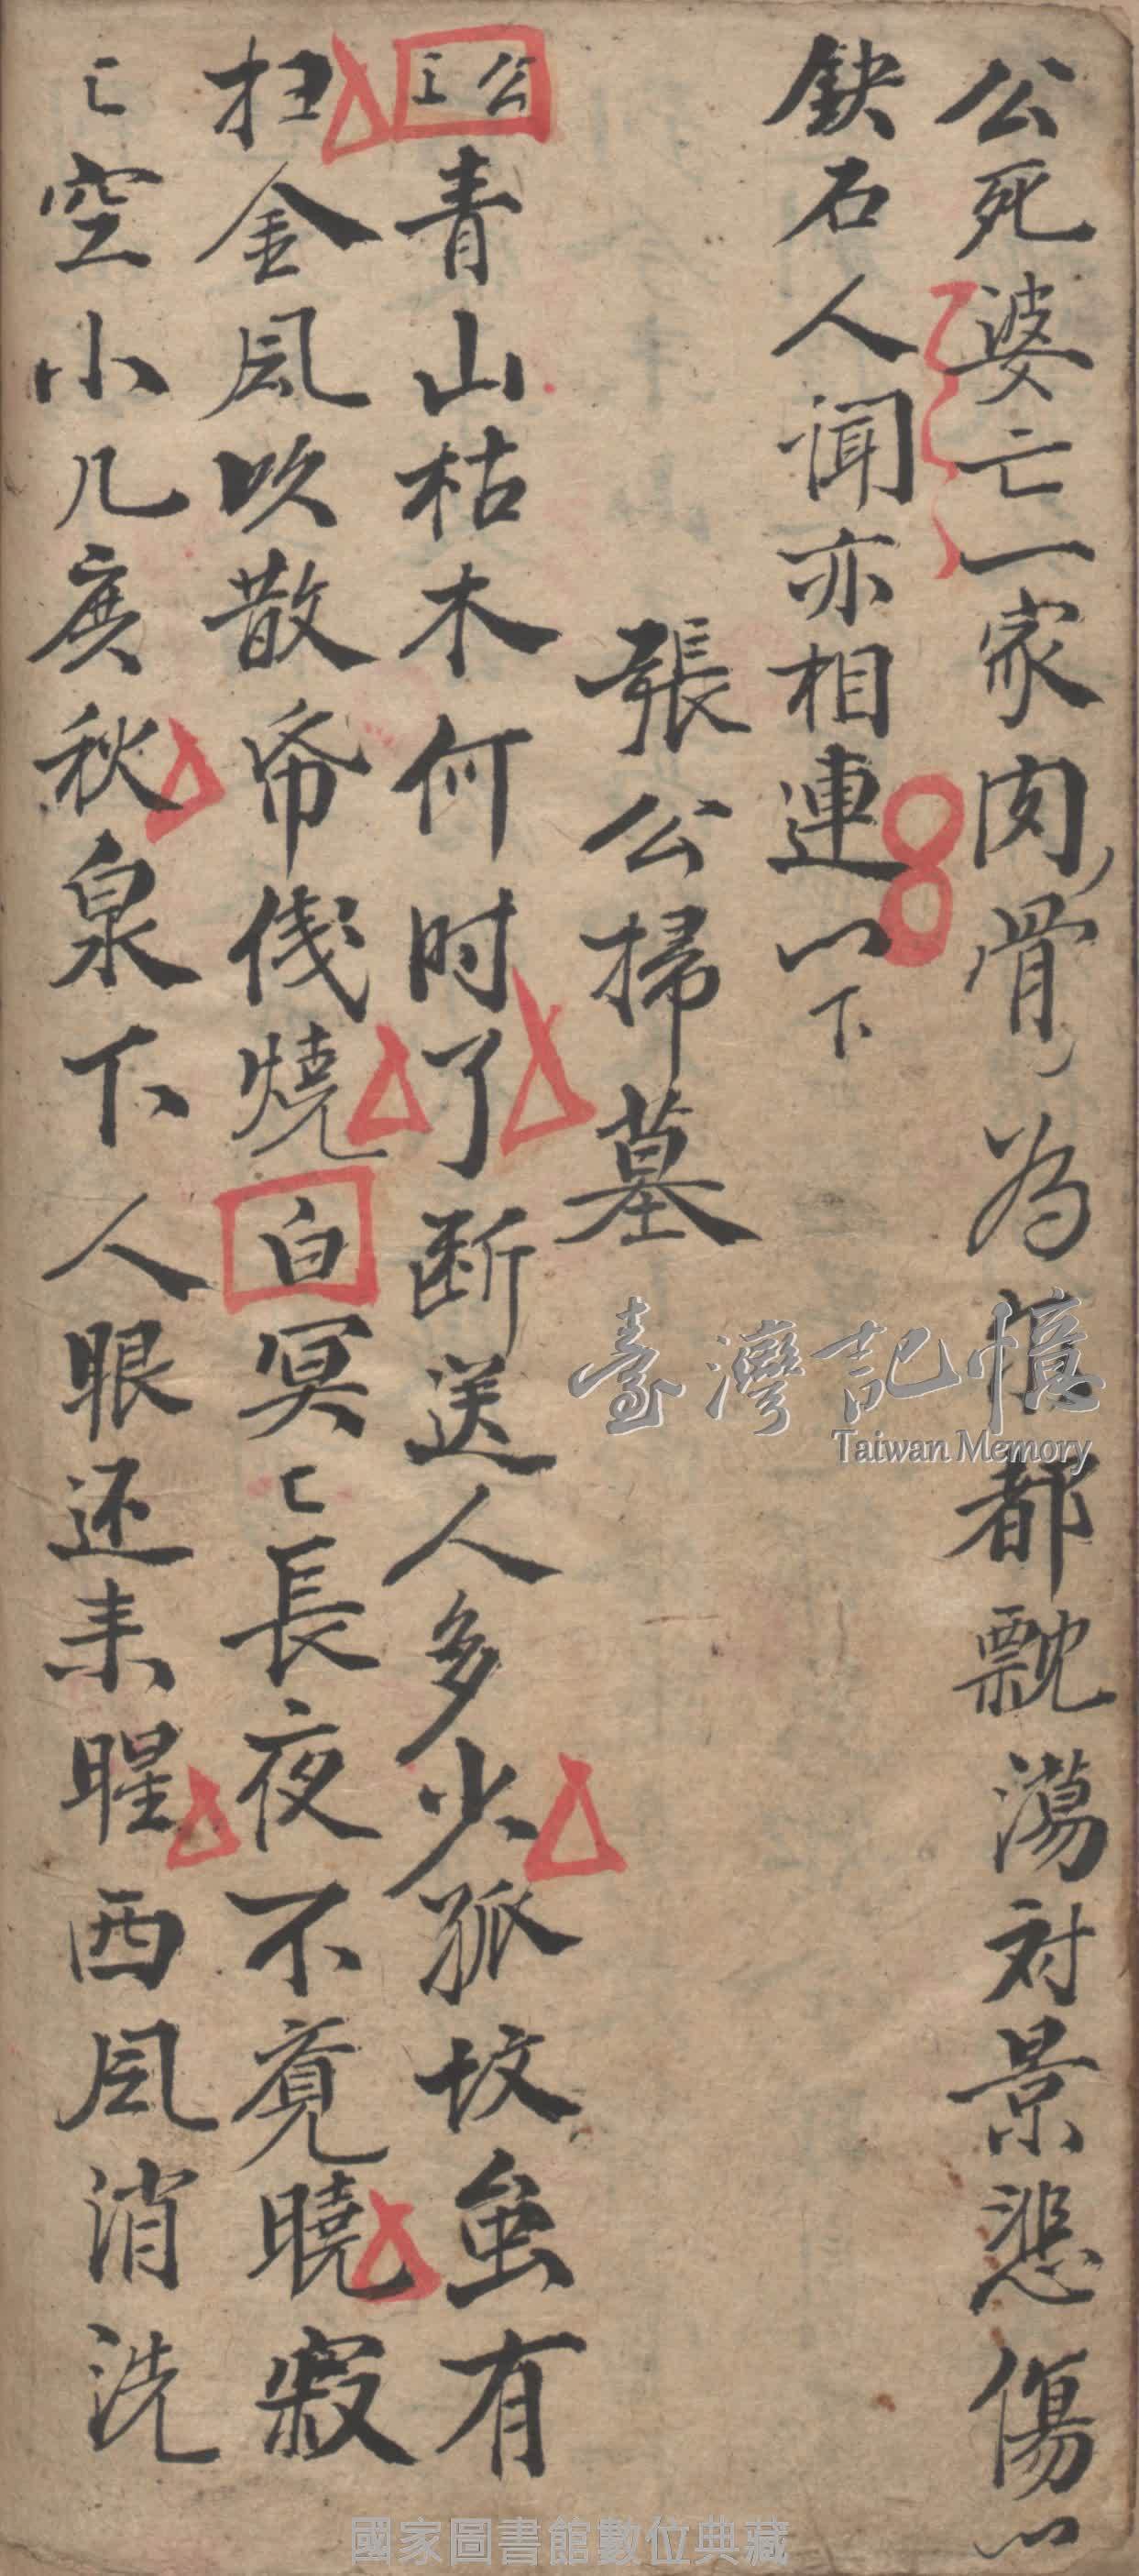 公死婆亡一家肉骨為都飄蕩対景悲傷
鉄石人闻亦相連 下
張公掃墓
公上青山枯木何时了断送人多少孤坟虽有
扫金风吹散帋伐燒白冥〻長夜不竟曉寂
〻空小几度秋泉下人眼还耒睲西风消洗
臺灣記憶
Taiwan Memory
國家圖書館數位典藏